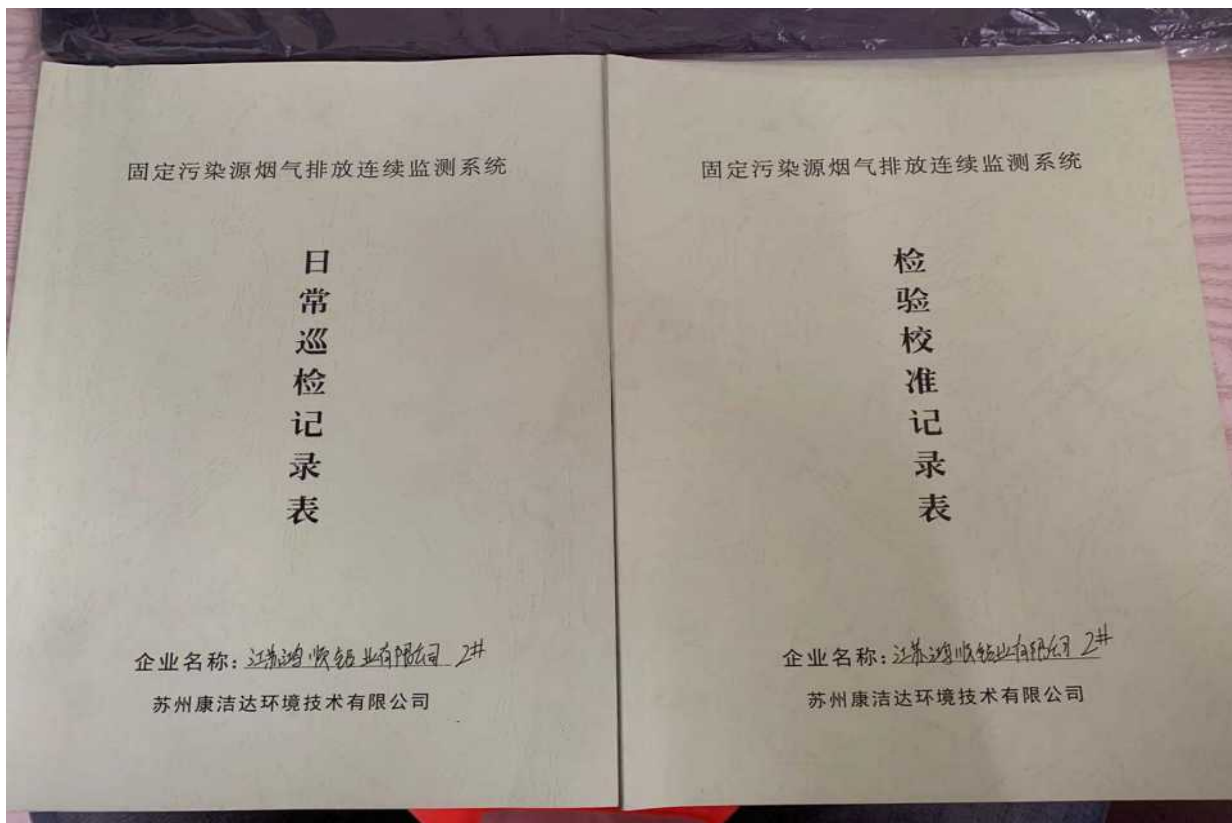 固定污染源烟气排放连续监测系统
日常巡检记录表
企业名称：江苏鸿顺铝业有限公司 2#
苏州康洁达环境技术有限公司
固定污染源烟气排放连续监测系统
检验校准记录表
企业名称：江苏鸿顺铝业有限公司 2#
苏州康洁达环境技术有限公司